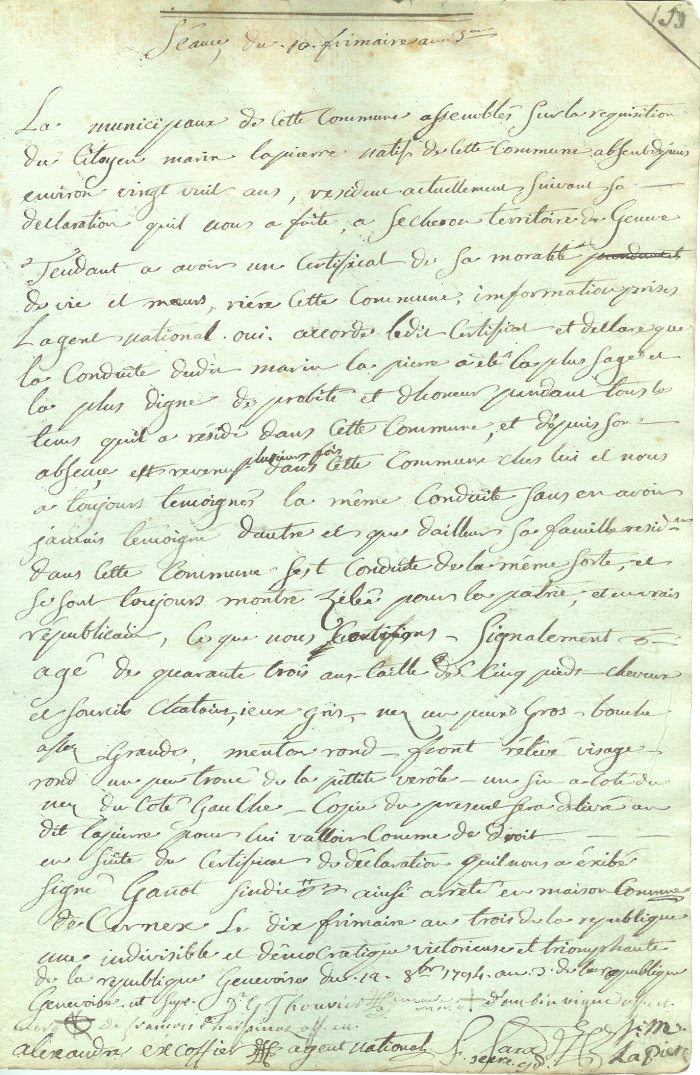 159
Séance du 10 frimaire an 3me
La municipaux de cette Commune assemblés sur la requisition
du Citoyen marin lapierre natif de cette Commune absent depuis
environ vingt vuit ans, resident actuellement suivant sa
declaration quil nous a faite, a Secheron territoire de Geneve
Tendant a avoir un Certificat de sa moralité
de vie et mœurs, riére cette Commune, imformation prises
Lagent national oui. accorde ledit Certificat et declare que
la Conduite dudit marin la pierre a été la plus sage et
la plus digne de probité et dhoneur pendant tous le
tems quil a résidé dans cette Commune, et depuis son
absence, est revenu plusieurs fois dans cette Commune ches lui et nous
a toujours temoigné la même Conduite sans en avoir
jamais temoigné dautre et que dailleur sa famille resid
dans cette Commune sest Conduite de la même sorte, et
se sont toujours montré zélée pour la patrie, et en vrais
républicain, Ce que nous Certifions - Signalement
agé de quarante trois ans taille de Cinq pieds - cheveux
et sourcils Chatains, ieux gris, nez un peu Gros - bouche
assez Grande, menton rond - front rélévé visage
rond un peu troué de la pettite veróle - un sin a coté du
nez du Coté Gauche - Copie du present sera delivré au
dit lapierre pour lui valloir Comme de droit
en suite du Certificat de déclaration quil nous a éxibé
signé Ganot sindic ainsi arrèté en maison Commune
de Cernex Le dix frimaire an trois de la republique
une indivisible et démocratique victorieuse et triomphante
de la republique Genevoise du 12 8bre 1794 an 3 de la republique
Genevoise ut supr. Thouvier
de francois
alexandre excoffier agent national
secre. La pierre